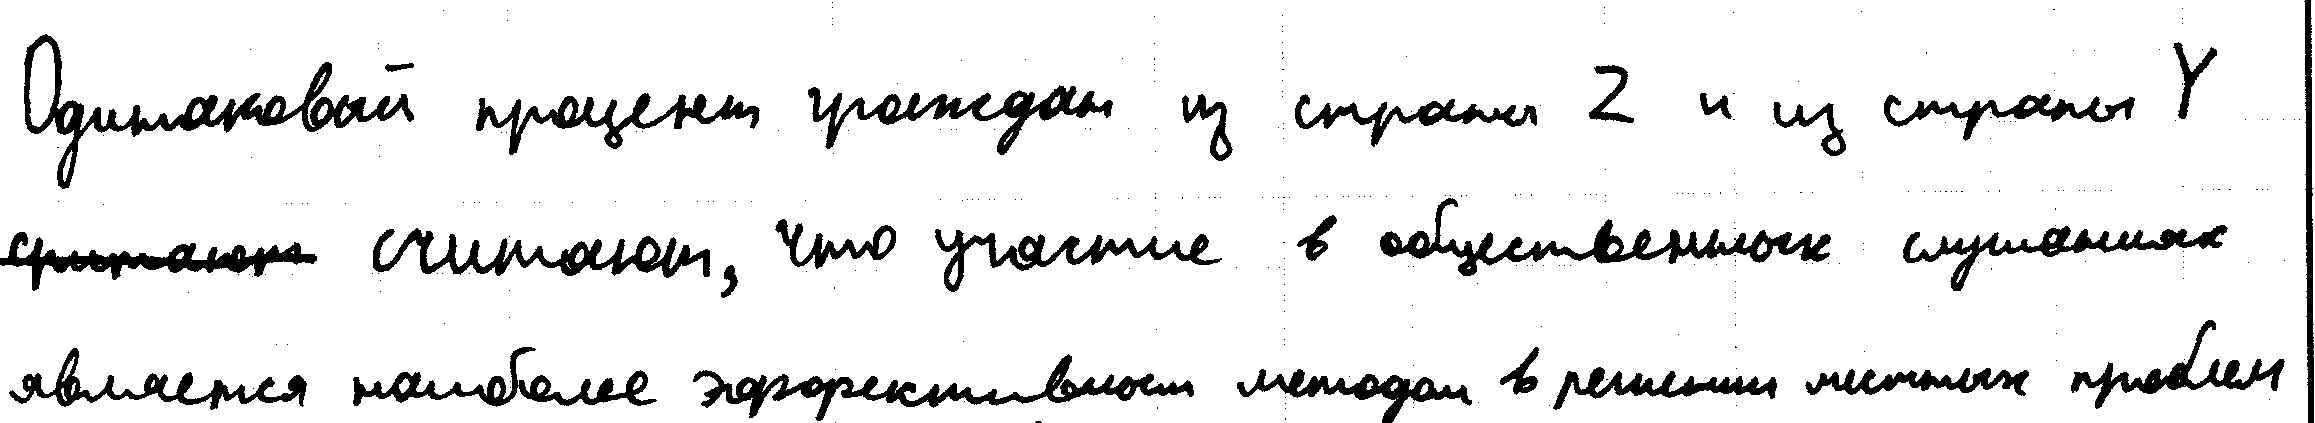 Одинаковый процент граждан из страны Z и из страны Y
считают, что участие в общественных слушаниях
является наиболее эффективным методом в решении местных проблем